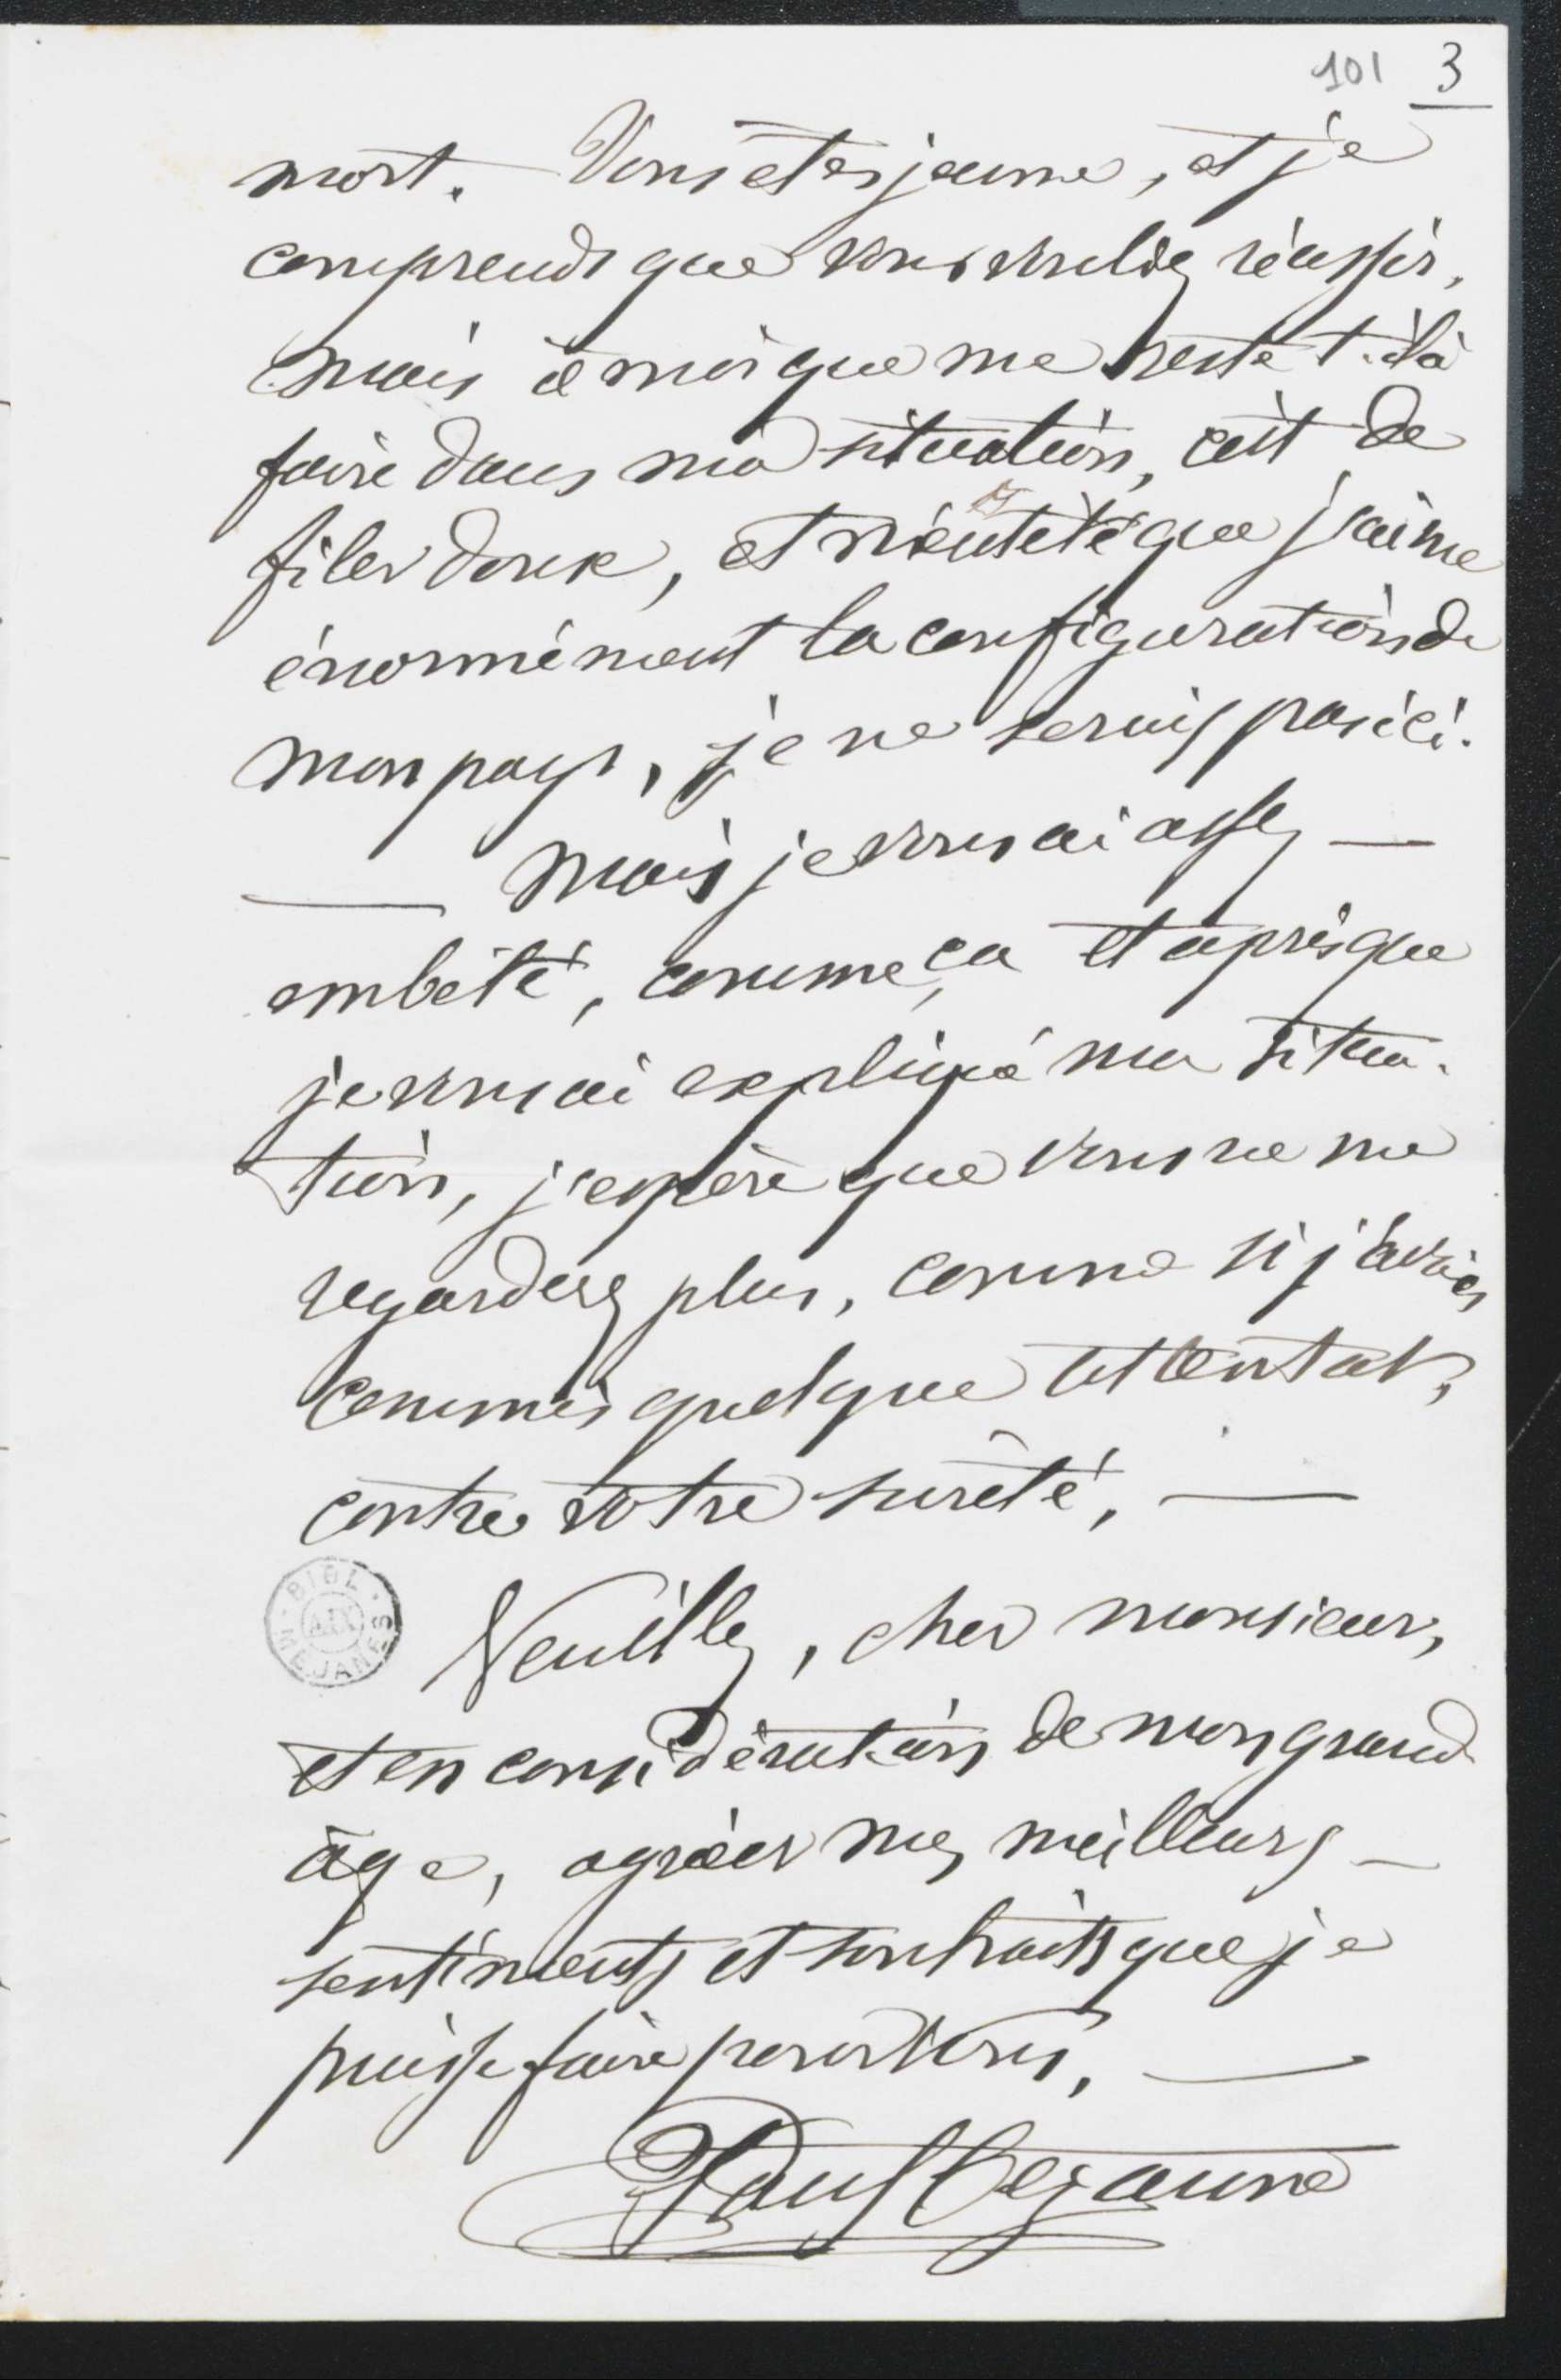 101 3
mort. Vous etes jeune, et je
comprends que vous vouliez réussir,
mais à moi que me reste t.il à
faire dans ma situation, c'est de
filer doux, et n'eut été que j'aime
énormément la configuration de
mon pays, je ne serais pas ici.
— Mais je vous ai assez —
embêté, comme ça et après que
je vous ai expliqué ma situa-
tion, j'espère que vous ne me
regarderez plus, comme si j'avais
commis quelque attentat,
contre votre sûreté, —
BIBL. AIX MEJANES
Veuillez, cher monsieur,
et en considération de mon grand
âge, agréer mes meilleurs —
sentiments et souhaits que je
puisse faire pour vous, —
Paul Cezanne